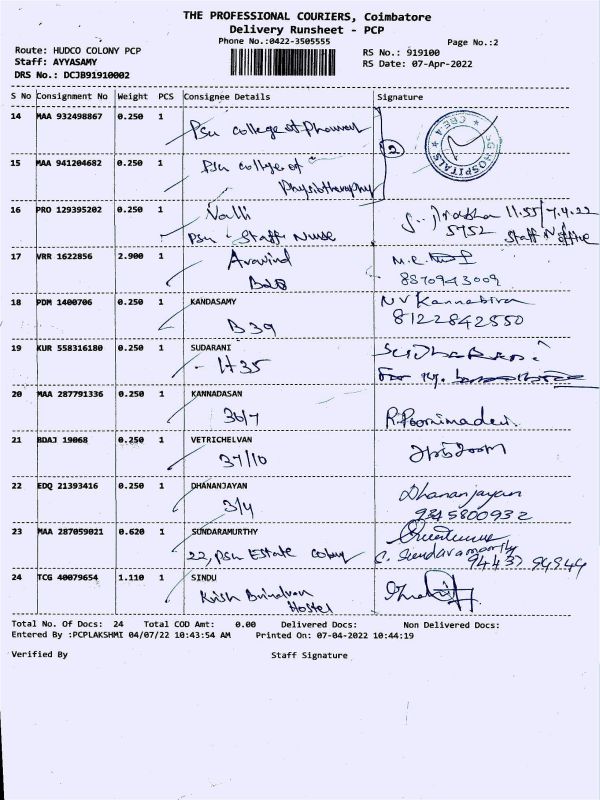 THE PROFESSIONAL COURIERS, Coimbatore
Delivery Runsheet - PCP
Phone No.:0422-3505555
Page No.:2
Route: HUDCO COLONY PCP
RS No.: 919100
Staff: AYYASAMY
RS Date: 07-Apr-2022
DRS No.: DCJB91910002
S No Consignment No Weight PCS Consignee Details Signature
14 MAA 932498867 0.250 1 Psu college of Pharmacy
2
15 MAA 941204682 0.250 1 Psu college of
Physiotherapy
HOSPITALS CBE-4
16 PRO 129395202 0.250 1 Valli 11.55/7.4.22
Psu - Staff Nurse 5752 Staff N/ office
17 VRR 1622856 2.900 1 Aravind
8870943009
18 PDM 1400706 0.250 1 KANDASAMY NV Kannabiran
B 39 8122842550
19 KUR 558316180 0.250 1 SUDARANI
- H35
20 MAA 287791336 0.250 1 KANNADASAN
36/7 R. Poornimadevi
21 BDAJ 19068 0.250 1 VETRICHELVAN
37/10
22 EDQ 21393416 0.250 1 DHANANJAYAN Dhananjayan
3/4 9345800932
23 MAA 287059021 0.620 1 SUNDARAMURTHY
22, Psu Estate Colony C. Sundaramoorthy
94437 94944
24 TCG 40079654 1.110 1 SINDU
Krish Brindavan
Hostel
Total No. Of Docs: 24 Total COD Amt: 0.00 Delivered Docs: Non Delivered Docs:
Entered By :PCPLAKSHMI 04/07/22 10:43:54 AM Printed On: 07-04-2022 10:44:19
Verified By Staff Signature